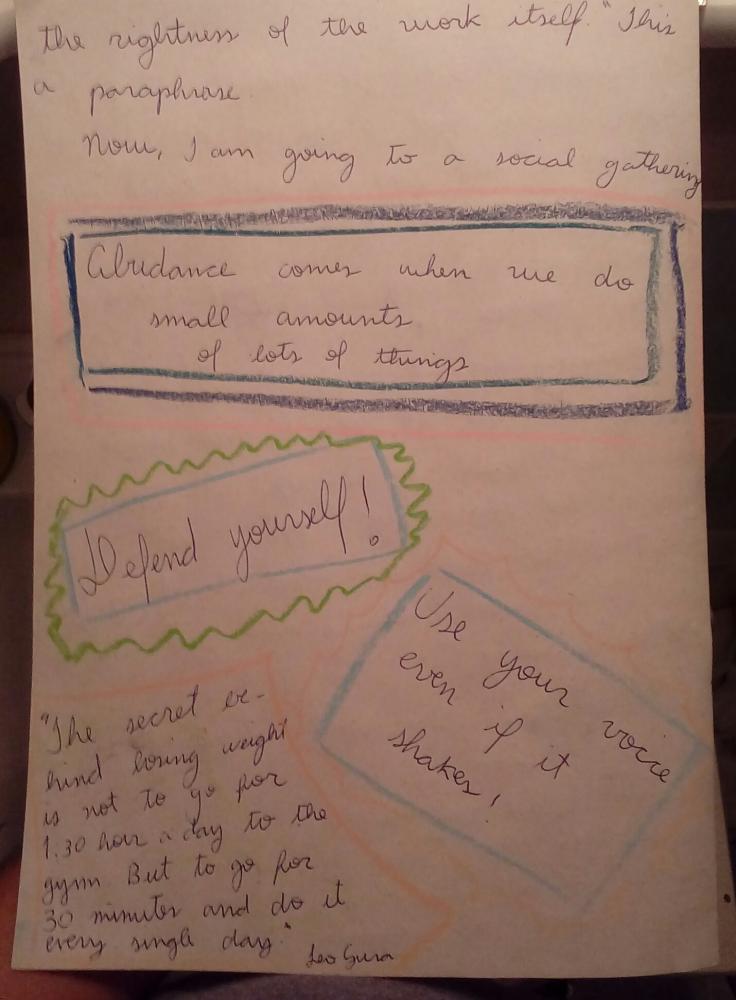 the rightness of the work itself." This
a paraphrase.
Now, I am going to a social gathering
Abudance comes when we do
small amounts
of lots of things
Defend yourself!
Use your voice
even if it
shakes!
"The secret be-
hind losing weight
is not to go for
1.30 hour a day to the
gym But to go for
30 minutes and do it
every single day."
Leo Gura